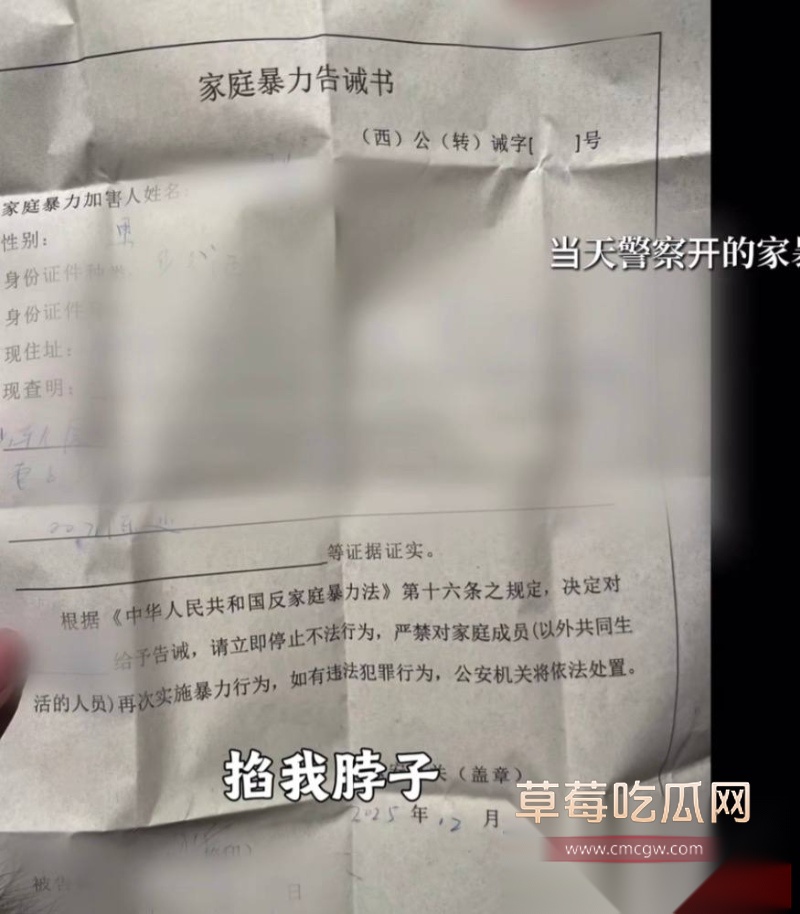 家庭暴力告诫书
（西）公（转）诫字[ ]号
家庭暴力加害人姓名：
性别： 男
当天警察开的家暴
身份证件种类
身份证件
现住址：
现查明：
等证据证实。
根据《中华人民共和国反家庭暴力法》第十六条之规定，决定对
给予告诫，请立即停止不法行为，严禁对家庭成员(以外共同生
活的人员)再次实施暴力行为，如有违法犯罪行为，公安机关将依法处置。
掐我脖子
关（盖章）
草莓吃瓜网
www.cmcgw.com
2025 年 12 月
被告
日